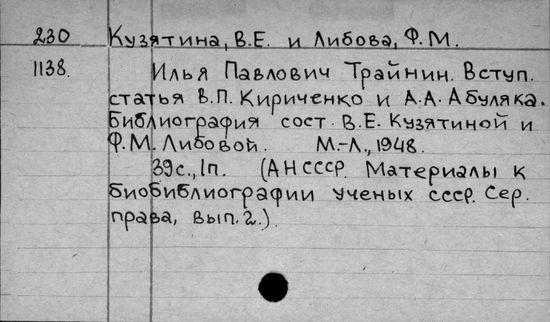 230 Кузятина, В.Е. и Либова, Ф.М.
1138. Илья Павлович Трайнин. Вступ.
статья В.П. Кириченко и А.А. Абуляка.
Библиография сост. В.Е. Кузятиной и
Ф.М. Либовой. М.-Л., 1948.
39с., 1п. (АН СССР. Материалы к
биобиблиографии ученых СССР. Сер.
права, вып. 2.)